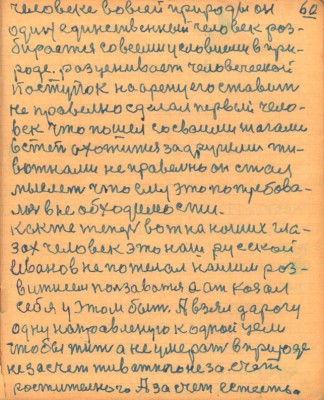 человека вовсей природы он 60
один единственный человек раз-
бирается совсеми условиями в при-
роде. разценивает человеческой
поступок наарену его ставит
не правелно сделал первый чело-
век что пошел сосваими шагами
встеп охотится задругими жи-
вотнами не правелно он стал
мыслет что ему это потребова-
лась вне обходимости.
как же теперь вот на наших гла-
зах человек это наш русской
Иванов не пожелал нашим роз-
витием ползаватся а отказал
себя у этом быт. А взял дарогу
одну направленую к одной цели
чтобы жит а не умерат в природе
не засчет животного не за счет
ростителного. А за счет естеств.